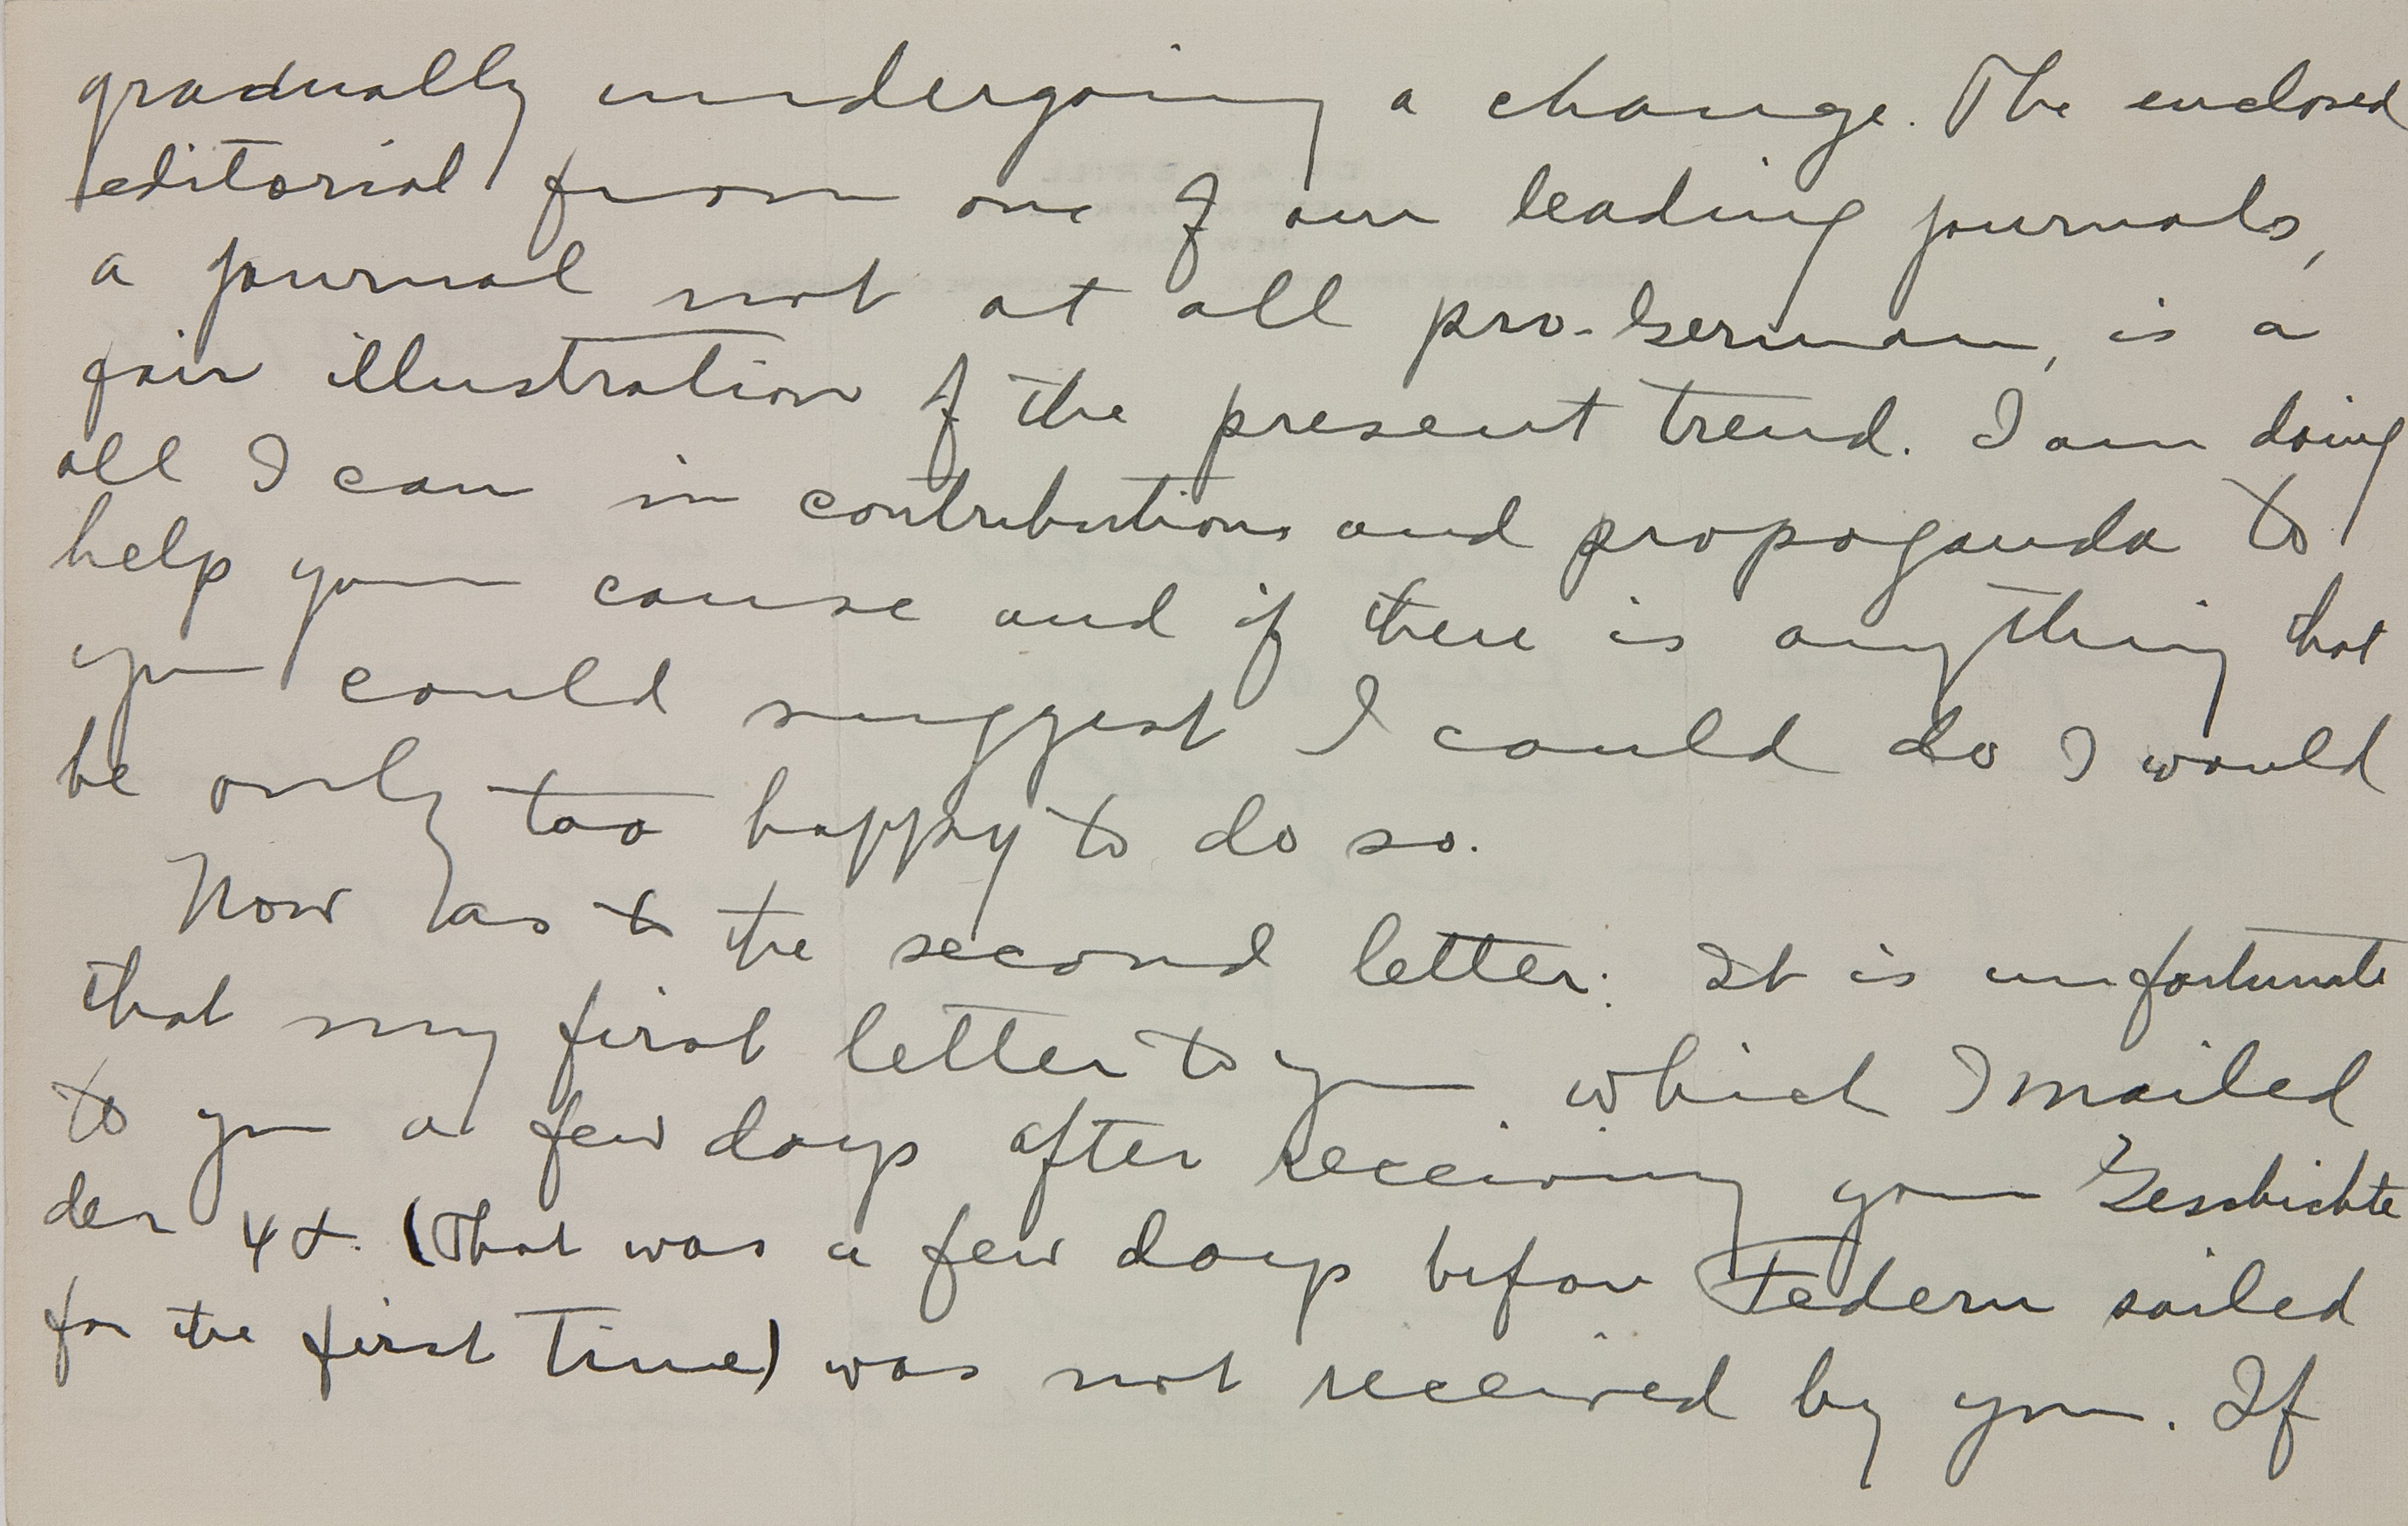 gradually undergoing a change. The enclosed
editorial from one of our leading journals,
a journal not at all pro-German, is a
fair illustration of the present trend. I am doing
all I can in contributions and propoganda to
help your cause and if there is anything that
you could suggest I could do I would
be only too happy to do so.
Now as to the second letter: It is unfortunate
that my first letter to you which I mailed
to you a few days after receiving your Geschichte
der ΨΑ. (That was a few days before Federn sailed
for the first time) was not received by you. If